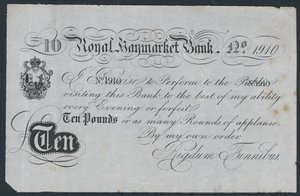 £10 Royal Haymarket Bank. No. 1910
I Promise to Perform to the Public
No 1910
visiting this Bank to the best of my ability
every Evening or forfeit
Ten Pounds or as many Rounds of applause.
By my own order
Ten
Rigdum Funnibus